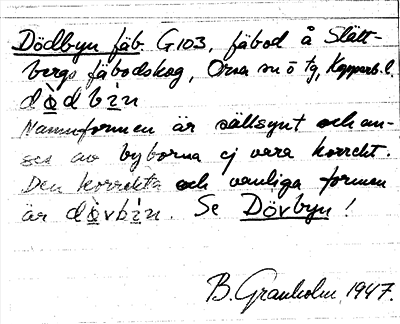 Dödbyn fäb. G103, fäbod å Slätt-
bergs fäbodskog, Orsa sn ö tg, Kopparb. l.
dòdbìn
Namnformen är sällsynt och an-
ses av byborna ej vara korrekt.
Den korrekta och vanliga formen
är dòvbìn. Se Dövbyn!
B. Granholm, 1947.